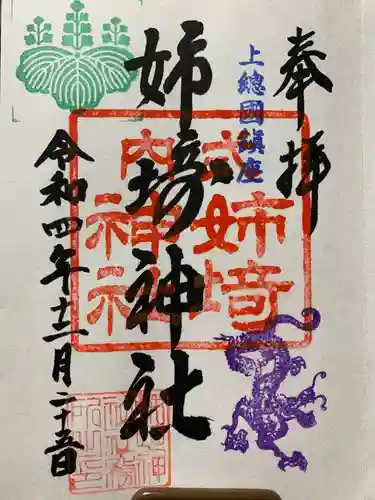 奉拝
上總國鎮座
姉埼神社
式内
姉埼
神社
令和四年十二月二十五日